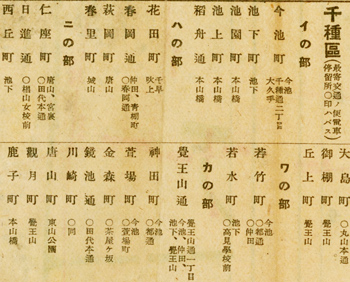 千種區(最寄交通ノ便電車停留所○印ハバス)
イの部
今池町 今池 千種通二丁目 大久手
池下町 池下
池園町 本山橋
池上町 本山橋
稻舟通 本山橋
ハの部
花田町 千早 吹上
春岡通 仲田、青柳町 ○春岡通
萩岡町 唐山
春里町 城山
ニの部
仁座町 唐山、宮裏 ○田代本通
日進通 ○椙山女校前
西丘町 池下
大島町 ○丸山本通
御棚町 覺王山
丘上町 覺王山
ワの部
若竹町 今池 ○都通 ○仲田
若水町 池下 ○高見學校前
カの部
覺王山通 覺王山通一丁目 今池、仲田、池下、覺王山
神田町 今池 ○都通
萱場町 今池 ○萱場町
金森町 ○茶屋ヶ坂
鏡池通 ○田代本通
川崎町 ○同
唐山町 東山公園
觀月町 覺王山
鹿子町 本山橋